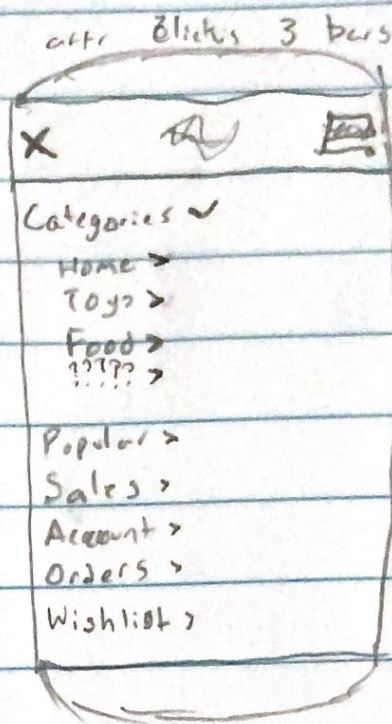 aftr clicks 3 bars
X
Categories ✓
Home >
Toys >
Food >
????? >
Popular >
Sales >
Account >
Orders >
Wishlist >